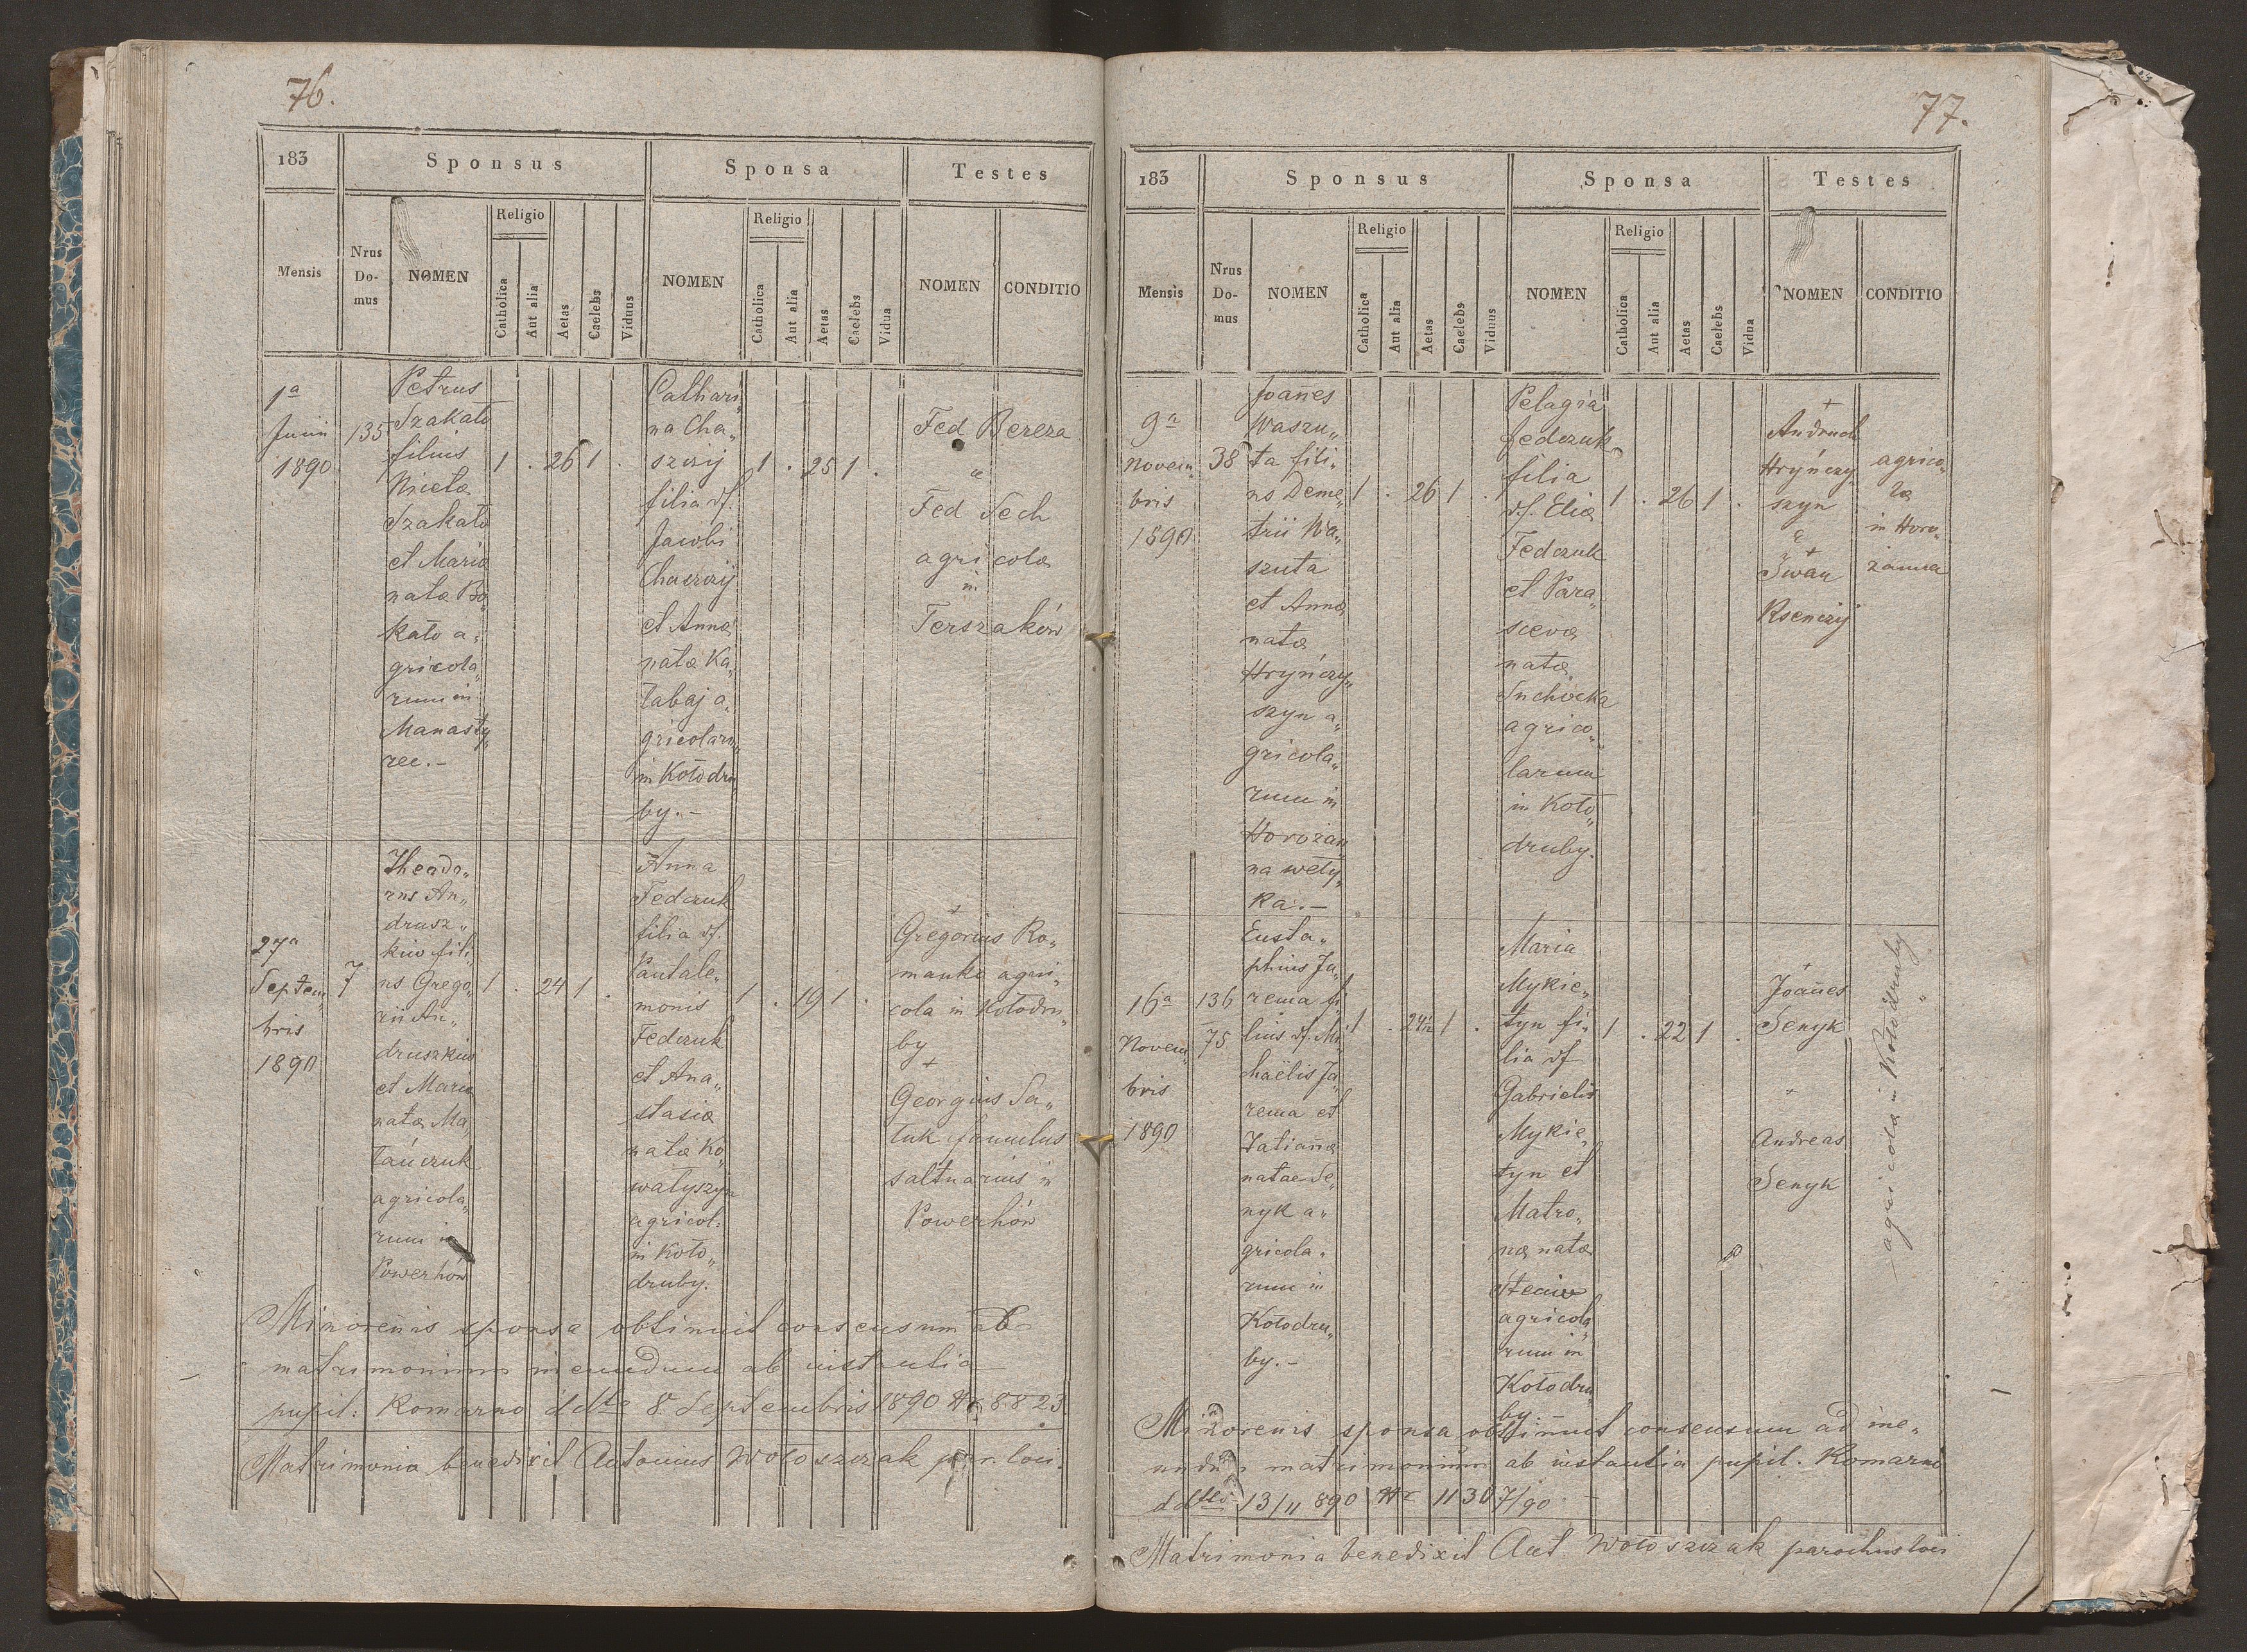 76.
183
Sponsus
Sponsa
Testes
Mensis
Nrus Do- mus
NOMEN
Religio
Catholica
Aut alia
Aetas
Caelebs
Viduus
NOMEN
Religio
Catholica
Aut alia
Aetas
Caelebs
Vidua
NOMEN
CONDITIO
1a
Junii
1890
135
Petrus
Szakało
filius
Szakało
et Maria
nata Ba„
kało a„
gricola„
rum in
Manasty„
rec.-
1 . 26 1 .
Cathari„
na Cha„
szczij
filia df.
Jacobi
Chaszczij
et Anna
nata Ka„
łabaj a„
gricolaru„
in Kołodru„
by.-
1 . 25 1 .
Fed Bereza
&
Fed Sech
agricola
in
Terszaków
27a
Septem„
bris
1890
7
Theodo„
rus An„
drusz„
kiw fili„
us Grego„
rii An„
druszkiw
et Maria
nata Ma„
łańczuk
agricola„
rum in
Powerhów
1 . 24 1 .
Anna
Fedczuk
filia df.
Pantale„
monis
Fedczuk
et Ana„
stasia
nata Ko„
wałyszyn
agricol.
in Koło„
druby.
1 . 19 1 .
+
Gregorius Ro„
manko agri„
cola in Kołodru„
by
+
Georgius Sa„
łuk famulus
saltuarius in
Powerhów
Minorenis sponsa obtinuit consensum ad
matrimonium ineundum ab instantia
pupil: Komarno ddto 8 Septembris 1890 Nr 8823
Matrimonia benedixit Antonius Wołoszczak par. loci.
77.
183
Sponsus
Sponsa
Testes
Mensis
Nrus Do- mus
NOMEN
Religio
Catholica
Aut alia
Aetas
Caelebs
Viduus
NOMEN
Religio
Catholica
Aut alia
Aetas
Caelebs
Vidua
NOMEN
CONDITIO
9a
Novem„
bris
1890
38
Joañes
Waszu„
ta fili„
us Deme„
trii Wa„
szuta
et Anna
nata
Hryńczy„
szyn a„
gricola„
rum in
Horożan
na wely„
ka.-
1 . 26 1 .
Pelagia
fedczuk
filia
df. Elia
Fedczuk
et Para„
sceva
nata
Suchocka
agrico„
larum
in Koło„
druby.
1 . 26 1 .
+
Andruch
Hryńczy„
szyn
&
+
Iwan
Ksenczij
agrico„
la
in Horo„
żanna
16a
Novem„
bris
1890
136
75
Eusta„
phius Ja„
rema fi„
lius df. Mi„
haëlis Ja„
rema et
Tatiana
natae Se„
nyk a„
gricola„
rum in
Kołodru„
by.-
1 . 24½ 1 .
Maria
Mykie„
tyn fi„
lia df
Gabrielis
Mykie„
tyn et
Matro„
na nata
Steciw
agricola„
rum in
Kołodru„
by.-
1 . 22 1 .
+
Joañes
Senyk
+
Andreas
Senyk
agricola in Kołodruby
Minorenis sponsa obtinuit consensum ad ine„
undum matrimonium ab instantia pupil. Komarno
ddto 13/11 890 Nr 11307/90 -
Matrimonia benedixit Ant. Wołoszczak parochus loci